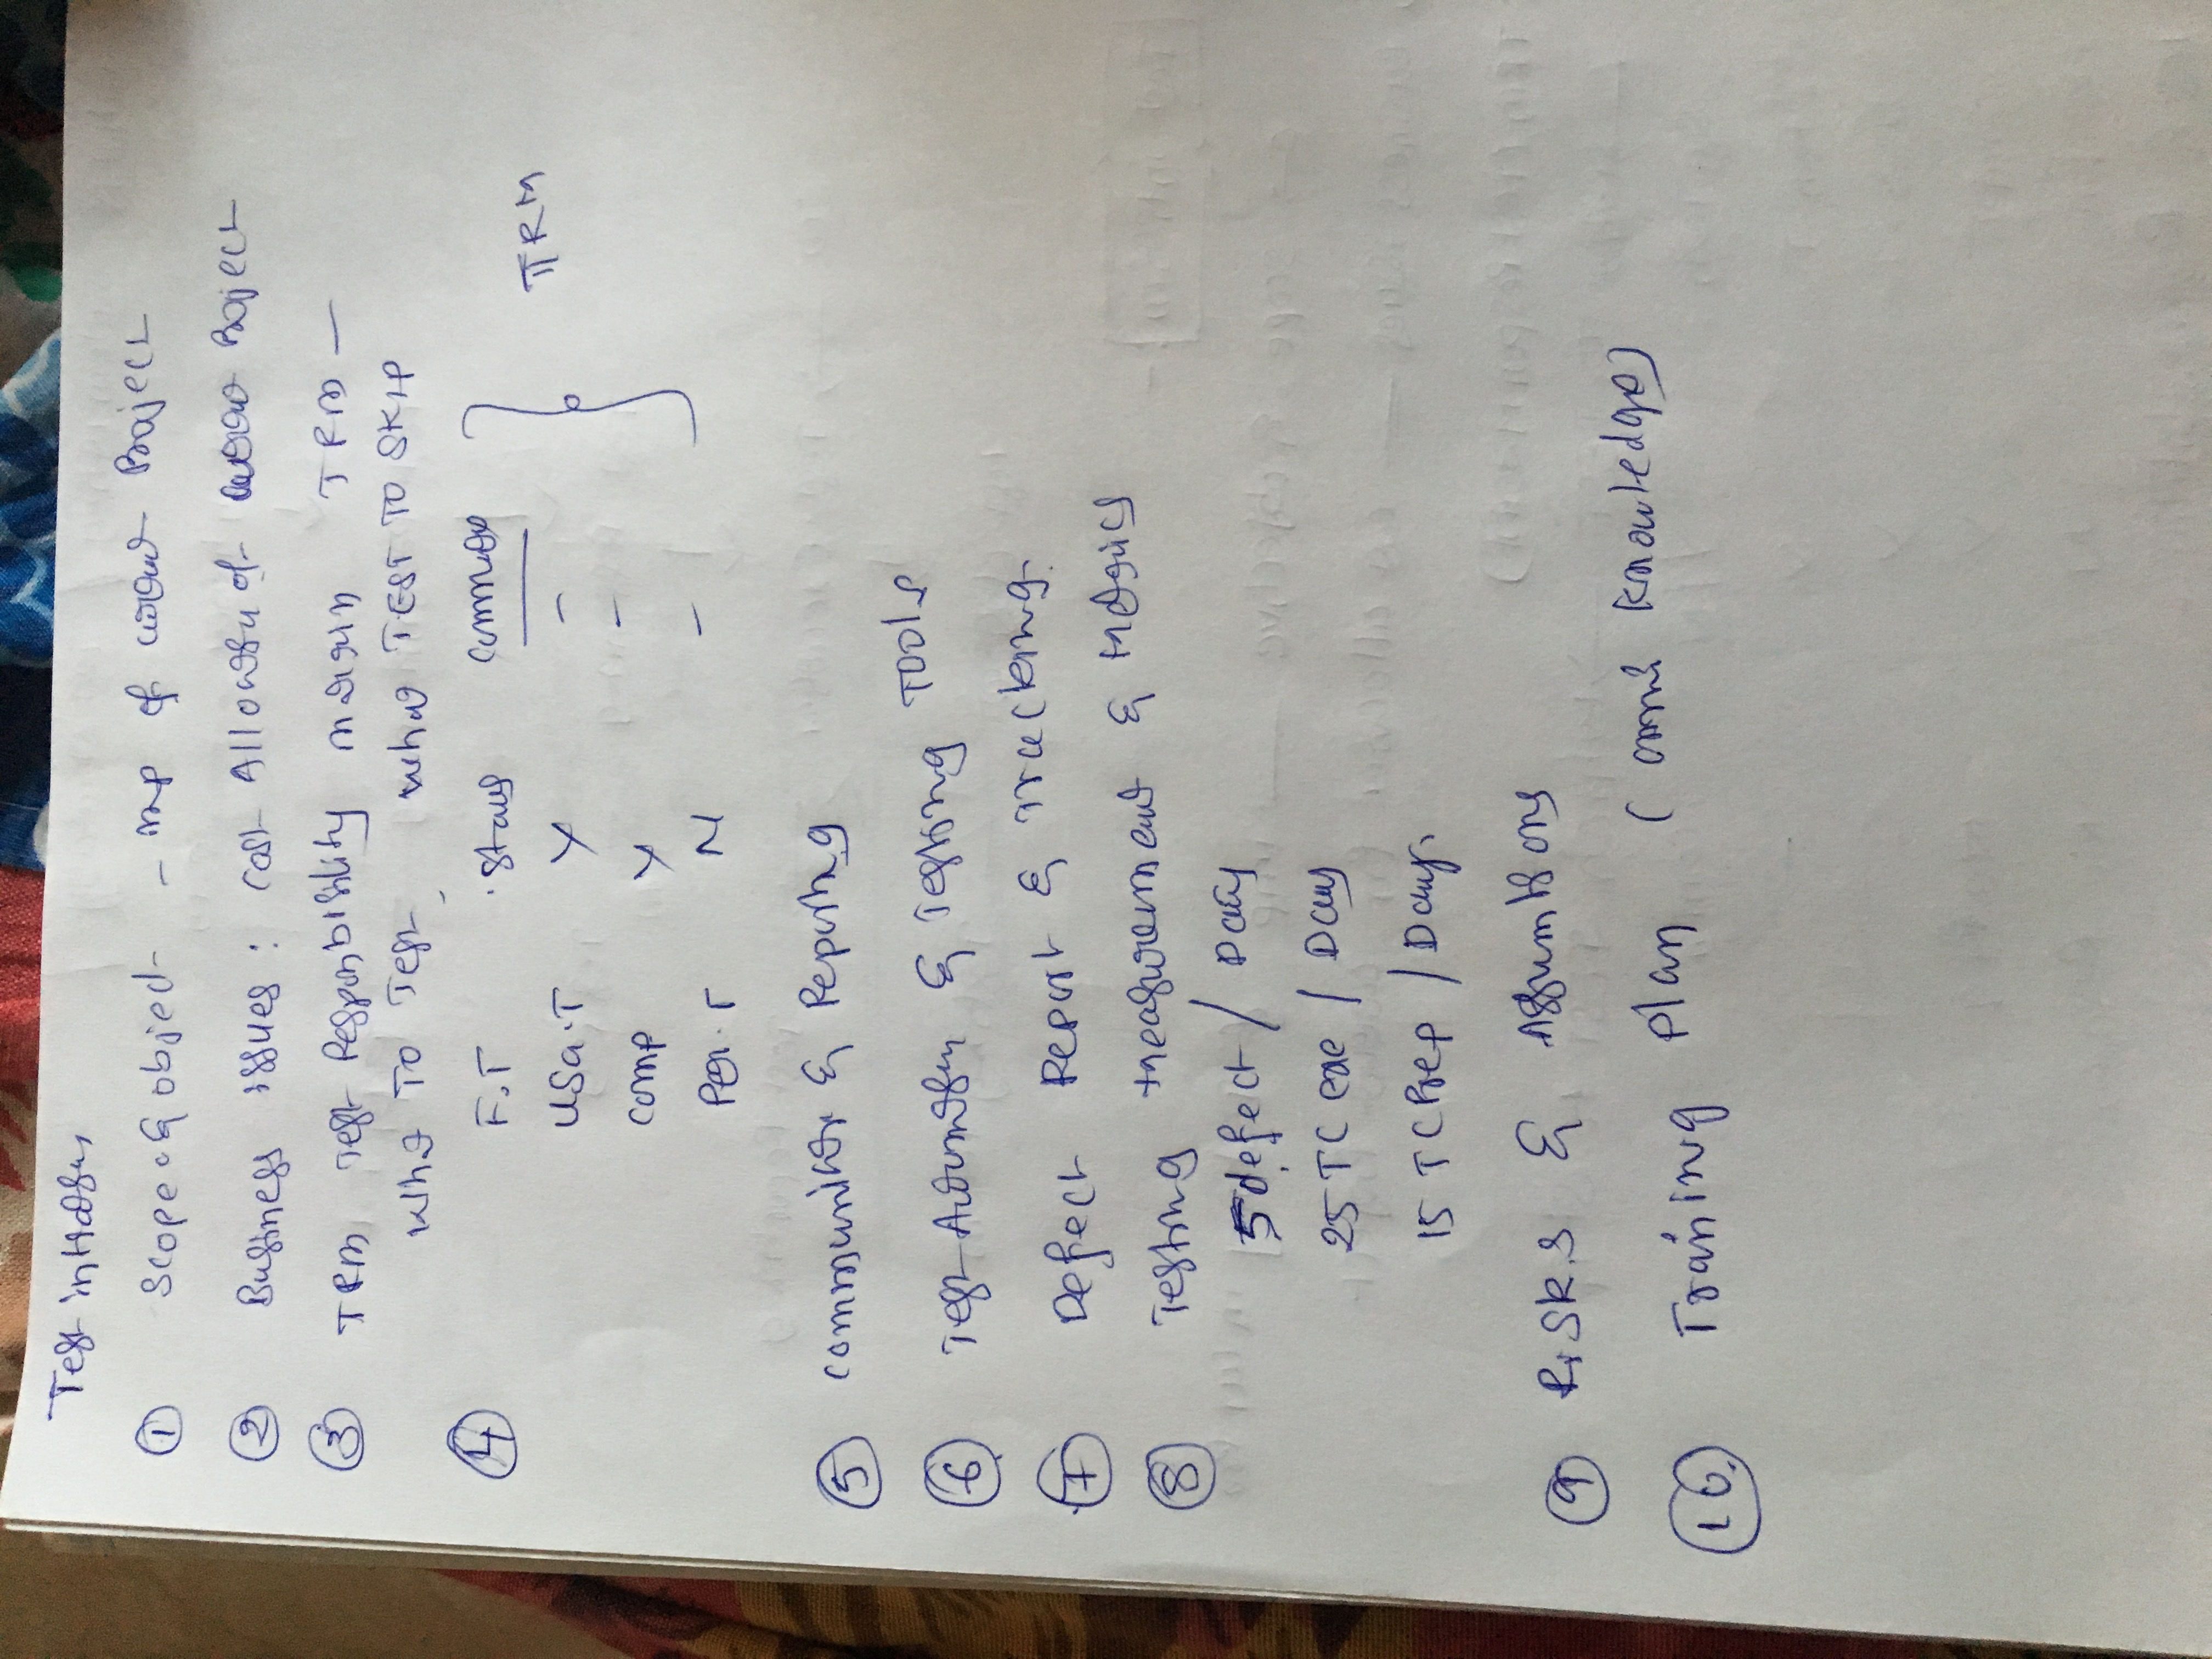 Test initiation
① Scope & object - imp of current Project
② Business issues : Cost Allocation of current Project
③ TRM Test Responsibility matrix TRM -
What TO Test what TEST TO SKIP
④ F.T Status comments
Usa.T Y - TRM
comp Y -
Per.T N -
⑤ Communication & Reporting
⑥ Test Automation & Testing TOOls
⑦ Defect Report & Tracking
⑧ Testing measurement & Metrics
5 defect / Day
25 TC exe / Day
15 TC Prep / Day.
⑨ RiSKS & Assumtions
⑩ Training plan ( knowledge)